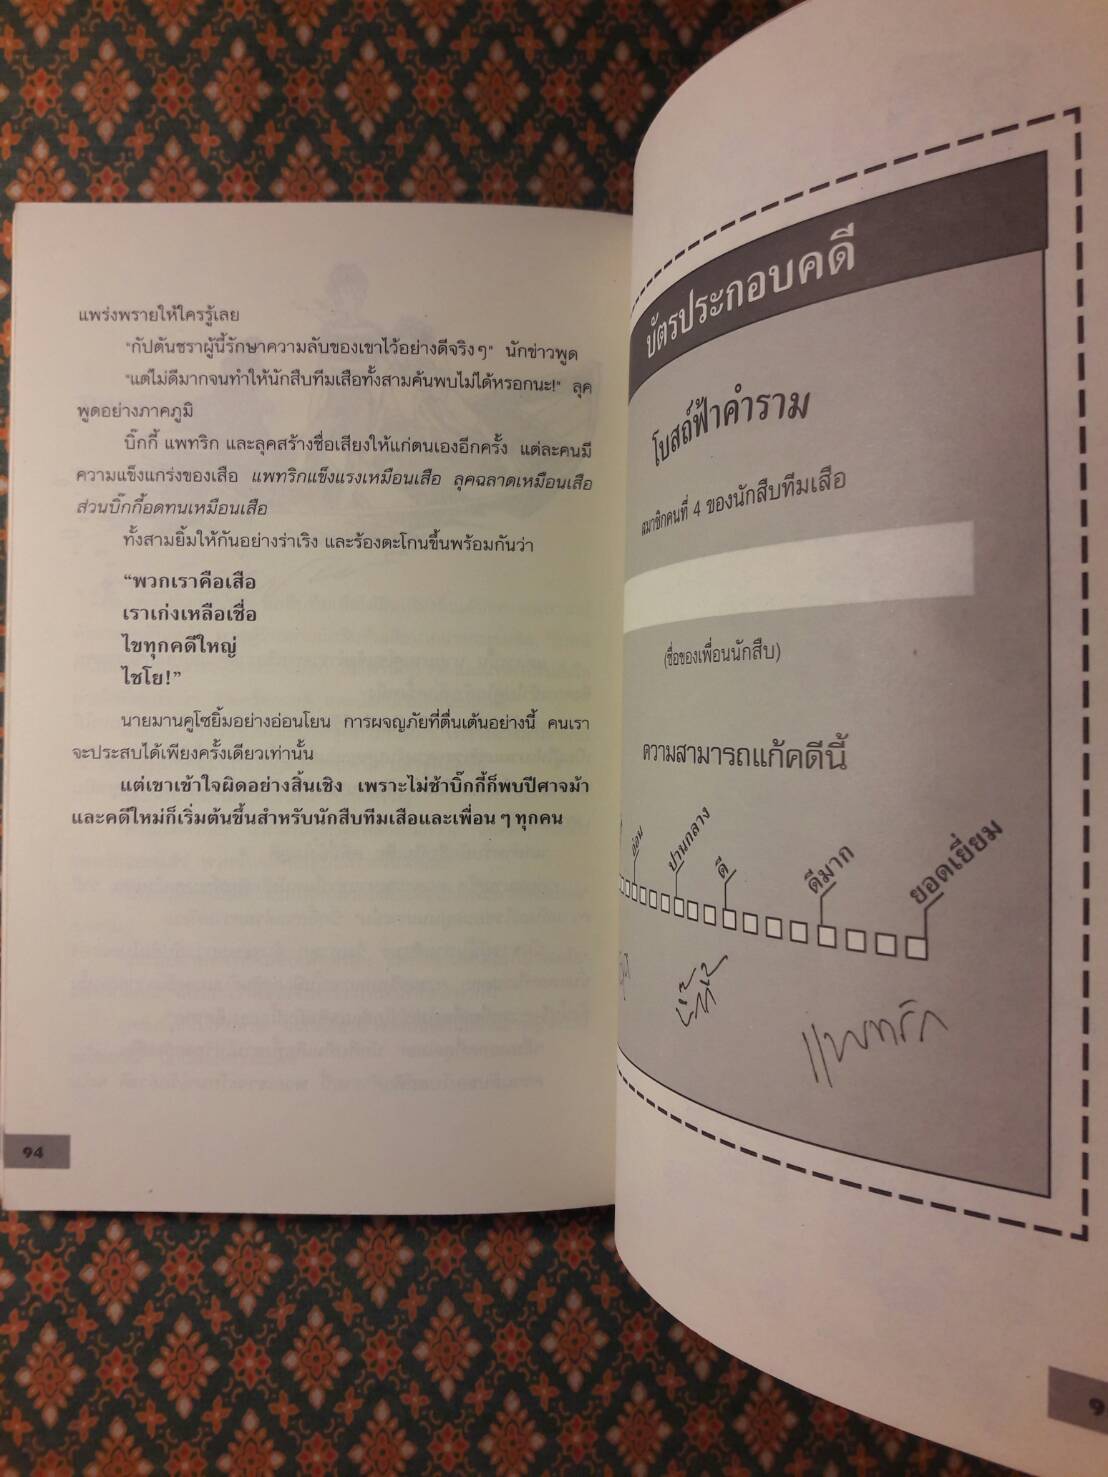 แพร่งพรายให้ใครรู้เลย
"กัปตันชราผู้นี้รักษาความลับของเขาไว้อย่างดีจริงๆ" นักข่าวพูด
"แต่ไม่ดีมากจนทำให้นักสืบทีมเสือทั้งสามค้นพบไม่ได้หรอกนะ!" ลุค
พูดอย่างภาคภูมิ
บิ๊กกี้ แพทริก และลุคสร้างชื่อเสียงให้แก่ตนเองอีกครั้ง แต่ละคนมี
ความแข็งแกร่งของเสือ แพทริกแข็งแรงเหมือนเสือ ลุคฉลาดเหมือนเสือ
ส่วนบิ๊กกี้อดทนเหมือนเสือ
ทั้งสามยิ้มให้กันอย่างร่าเริง และร้องตะโกนขึ้นพร้อมกันว่า
"พวกเราคือเสือ
เราเก่งเหลือเชื่อ
ไขทุกคดีใหญ่
ไชโย!"
นายมานคูโซยิ้มอย่างอ่อนโยน การผจญภัยที่ตื่นเต้นอย่างนี้ คนเรา
จะประสบได้เพียงครั้งเดียวเท่านั้น
แต่เขาเข้าใจผิดอย่างสิ้นเชิง เพราะไม่ช้าบิ๊กกี้ก็พบปีศาจม้า
และคดีใหม่ก็เริ่มต้นขึ้นสำหรับนักสืบทีมเสือและเพื่อนๆ ทุกคน
94
บัตรประกอบคดี
โบสถ์ฟ้าคำราม
สมาชิกคนที่ 4 ของนักสืบทีมเสือ
(ชื่อของเพื่อนนักสืบ)
ความสามารถแก้คดีนี้
อ่อน
ปานกลาง
ดี
ดีมาก
ยอดเยี่ยม
บิ๊กกี้
แพทริก
9